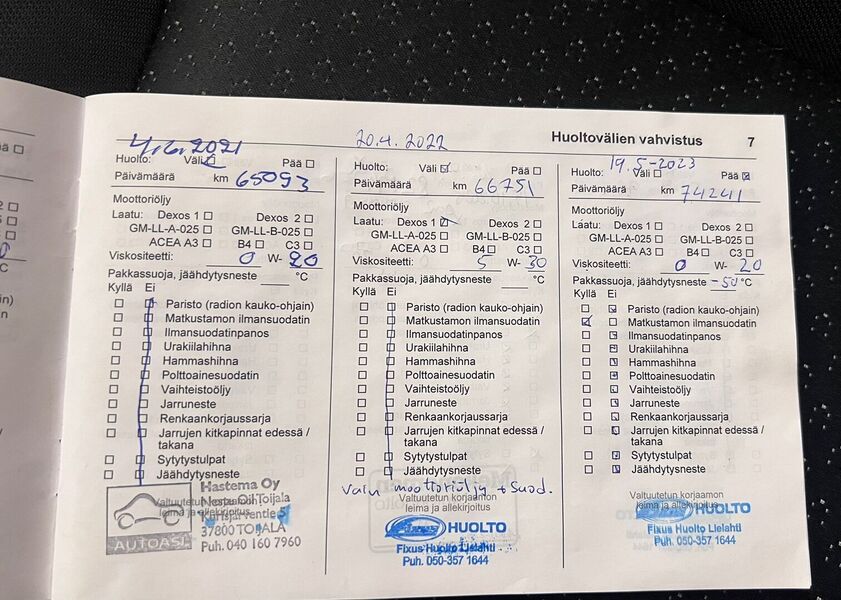 Huoltovälien vahvistus 7
4.6.2021
Huolto: Väli Pää
Päivämäärä km 65093
Moottoriöljy
Laatu: Dexos 1 Dexos 2
GM-LL-A-025 GM-LL-B-025
ACEA A3 B4 C3
Viskositeetti: 0 W- 20
Pakkassuoja, jäähdytysneste °C
Kyllä Ei
Paristo (radion kauko-ohjain)
Matkustamon ilmansuodatin
Ilmansuodatinpanos
Urakiilahihna
Hammashihna
Polttoainesuodatin
Vaihteistoöljy
Jarruneste
Renkaankorjaussarja
Jarrujen kitkapinnat edessä /
takana
Sytytystulpat
Jäähdytysneste
Valtuutetun korjaamon
leima ja allekirjoitus
Hastema Oy
Neste Oil Toijala
37800 TOIJALA
Puh. 040 160 7960
AUTOASI
20.4.2022
Huolto: Väli Pää
Päivämäärä km 66751
Moottoriöljy
Laatu: Dexos 1 Dexos 2
GM-LL-A-025 GM-LL-B-025
ACEA A3 B4 C3
Viskositeetti: 5 W- 30
Pakkassuoja, jäähdytysneste °C
Kyllä Ei
Paristo (radion kauko-ohjain)
Matkustamon ilmansuodatin
Ilmansuodatinpanos
Urakiilahihna
Hammashihna
Polttoainesuodatin
Vaihteistoöljy
Jarruneste
Renkaankorjaussarja
Jarrujen kitkapinnat edessä /
takana
Sytytystulpat
Jäähdytysneste
vain moottoriöljy + suod.
Valtuutetun korjaamon
leima ja allekirjoitus
Fixus HUOLTO
Fixus Huolto Lielahti
Puh. 050-357 1644
19.5-2023
Huolto: Väli Pää
Päivämäärä km 74241
Moottoriöljy
Laatu: Dexos 1 Dexos 2
GM-LL-A-025 GM-LL-B-025
ACEA A3 B4 C3
Viskositeetti: 0 W- 20
Pakkassuoja, jäähdytysneste -50 °C
Kyllä Ei
Paristo (radion kauko-ohjain)
Matkustamon ilmansuodatin
Ilmansuodatinpanos
Urakiilahihna
Hammashihna
Polttoainesuodatin
Vaihteistoöljy
Jarruneste
Renkaankorjaussarja
Jarrujen kitkapinnat edessä /
takana
Sytytystulpat
Jäähdytysneste
Valtuutetun korjaamon
leima ja allekirjoitus
Fixus HUOLTO
Fixus Huolto Lielahti
Puh. 050-357 1644